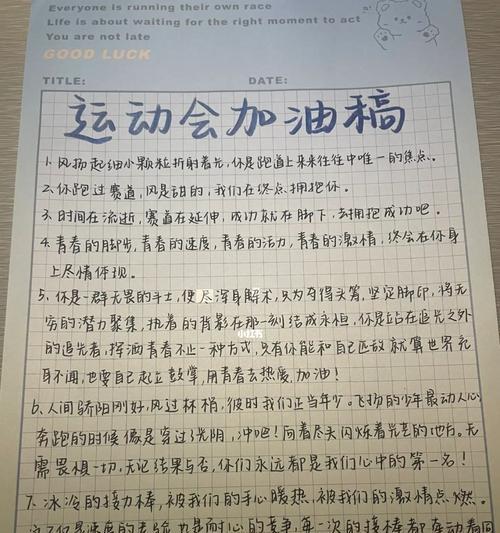 Everyone is running their own race
Life is about waiting for the right moment to act
You are not late
GOOD LUCK
TITLE: DATE:
运动会加油稿
1、风扬起细小颗粒折射着光,你是跑道上来来往往中唯一的焦点。
2、你跑过赛道,风是甜的,我们在终点拥抱你。
3、时间在流逝,赛道在延伸,成功就在脚下,去拥抱成功吧。
4、青春的脚步,青春的速度,青春的活力,青春的激情,终会在你身
上尽情体现。
5、你是一群无畏的斗士,使尽浑身解术,只为夺得头筹,坚定脚印,将无
穷的潜力聚集,执着的背影在那一刻结成永恒,你是站在追光之外
的追光者,挥洒青春不止一种方式,只有你能和自己匹敌就算世界充
耳不闻,也要自己起立鼓掌,用青春去热度,加油!
6、人间骄阳刚好,风过林梢,彼时我们正当年少。飞扬的少年最动人心
奔跑的时候像是穿过光阴,冲吧!向着尽头闪烁着光芒的地方。无
需畏惧一切,无论结果与否,你们永远都是我们心中的第一名!
7、冰冷的接力棒,被我们的手心暖热,被我们的激情点燃。
这不仅是速度的考验,也是耐心的竞争,每一次的接棒都牵动着同
小红书